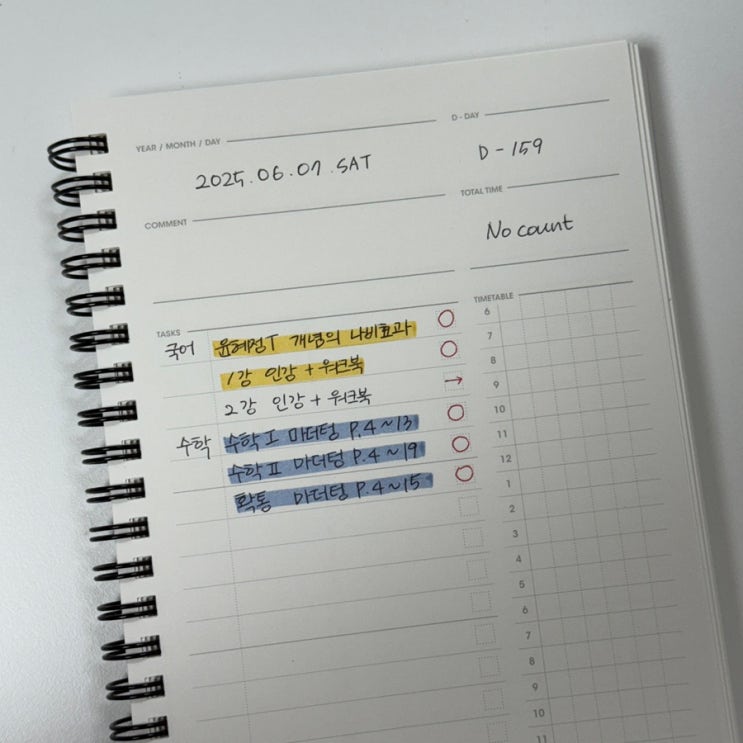 YEAR / MONTH / DAY
D - DAY
2025.06.07.SAT
D-159
COMMENT
TOTAL TIME
No count
TASKS
TIMETABLE
국어 윤혜정T 개념의 나비효과
1강 인강 + 워크북
2강 인강 + 워크북
수학 수학Ⅰ 마더텅 P.4~13
수학Ⅱ 마더텅 P.4~19
확통 마더텅 P.4~15
6
7
8
9
10
11
12
1
2
3
4
5
6
7
8
9
10
11